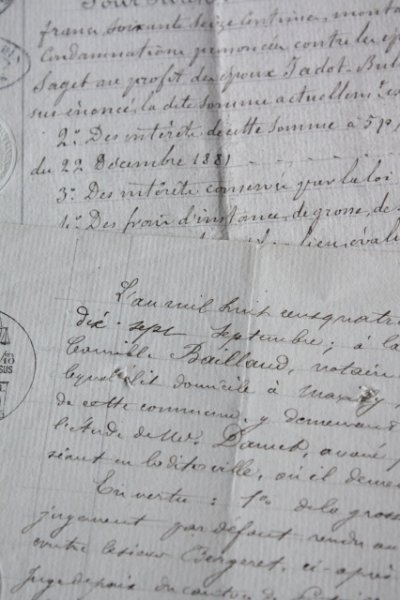 francs soixante seize centimes, mont
condamnations prononcées contre les ép
Saget au profit des époux Jadot-Bul
sus énoncé, la dite somme actuellemt
2° Des intérêts de cette somme à 5 p%
du 22 décembre 1881
3° Des intérêts conservés par la loi
4° Des frais d'instance, de grosse, de
L'an mil huit cent quatre
dix-sept septembre; à la
Camille Bailland, notaire
lequel élit domicile à
de cette commune, y demeurant
l'étude de Me avoué
séant en la dite ville, où il deme
En vertu: 1° de la gross
jugement par défaut rendu au
contre le sieur Bergeret, ci-après
Juge de paix du canton de